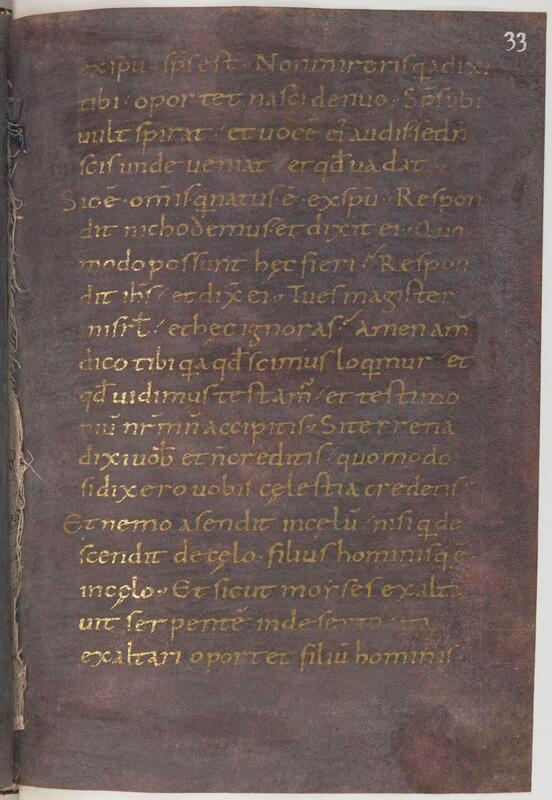 33
exspū · sp̄s est · Non mireris qa dixi
tibi · oportet nasci denuo · Sp̄s ubi
uult spirat · et uocē ei' audis · sed n̄
scis unde ueniat · et qđ uadat ·
Sic ē · om̄is qui natus · ē · ex spū · Respon
dit nichodemus et dixit ei · Quo
modo possunt hęc fieri · Respon
dit ih̄s · et dix̄ ei · Tu es magister
in isrl̄ · et hęc ignoras · Amen am̄
dico tibi qa qđ scimus loqimur · et
qđ uidimus testam̄ · et testimo
niū nr̄m n̄ accipitis · Si terrena
dixi uob̄ et n̄ creditis · quomodo
si dixero uobis cęlestia credetis ·
Et nemo asendit in cęlū · nisi qi de
scendit de cęlo · filius hominis q ē
in cęlo · Et sicut moyses exalta
uit serpentē in deserto · ita
exaltari oportet filiū hominis ·